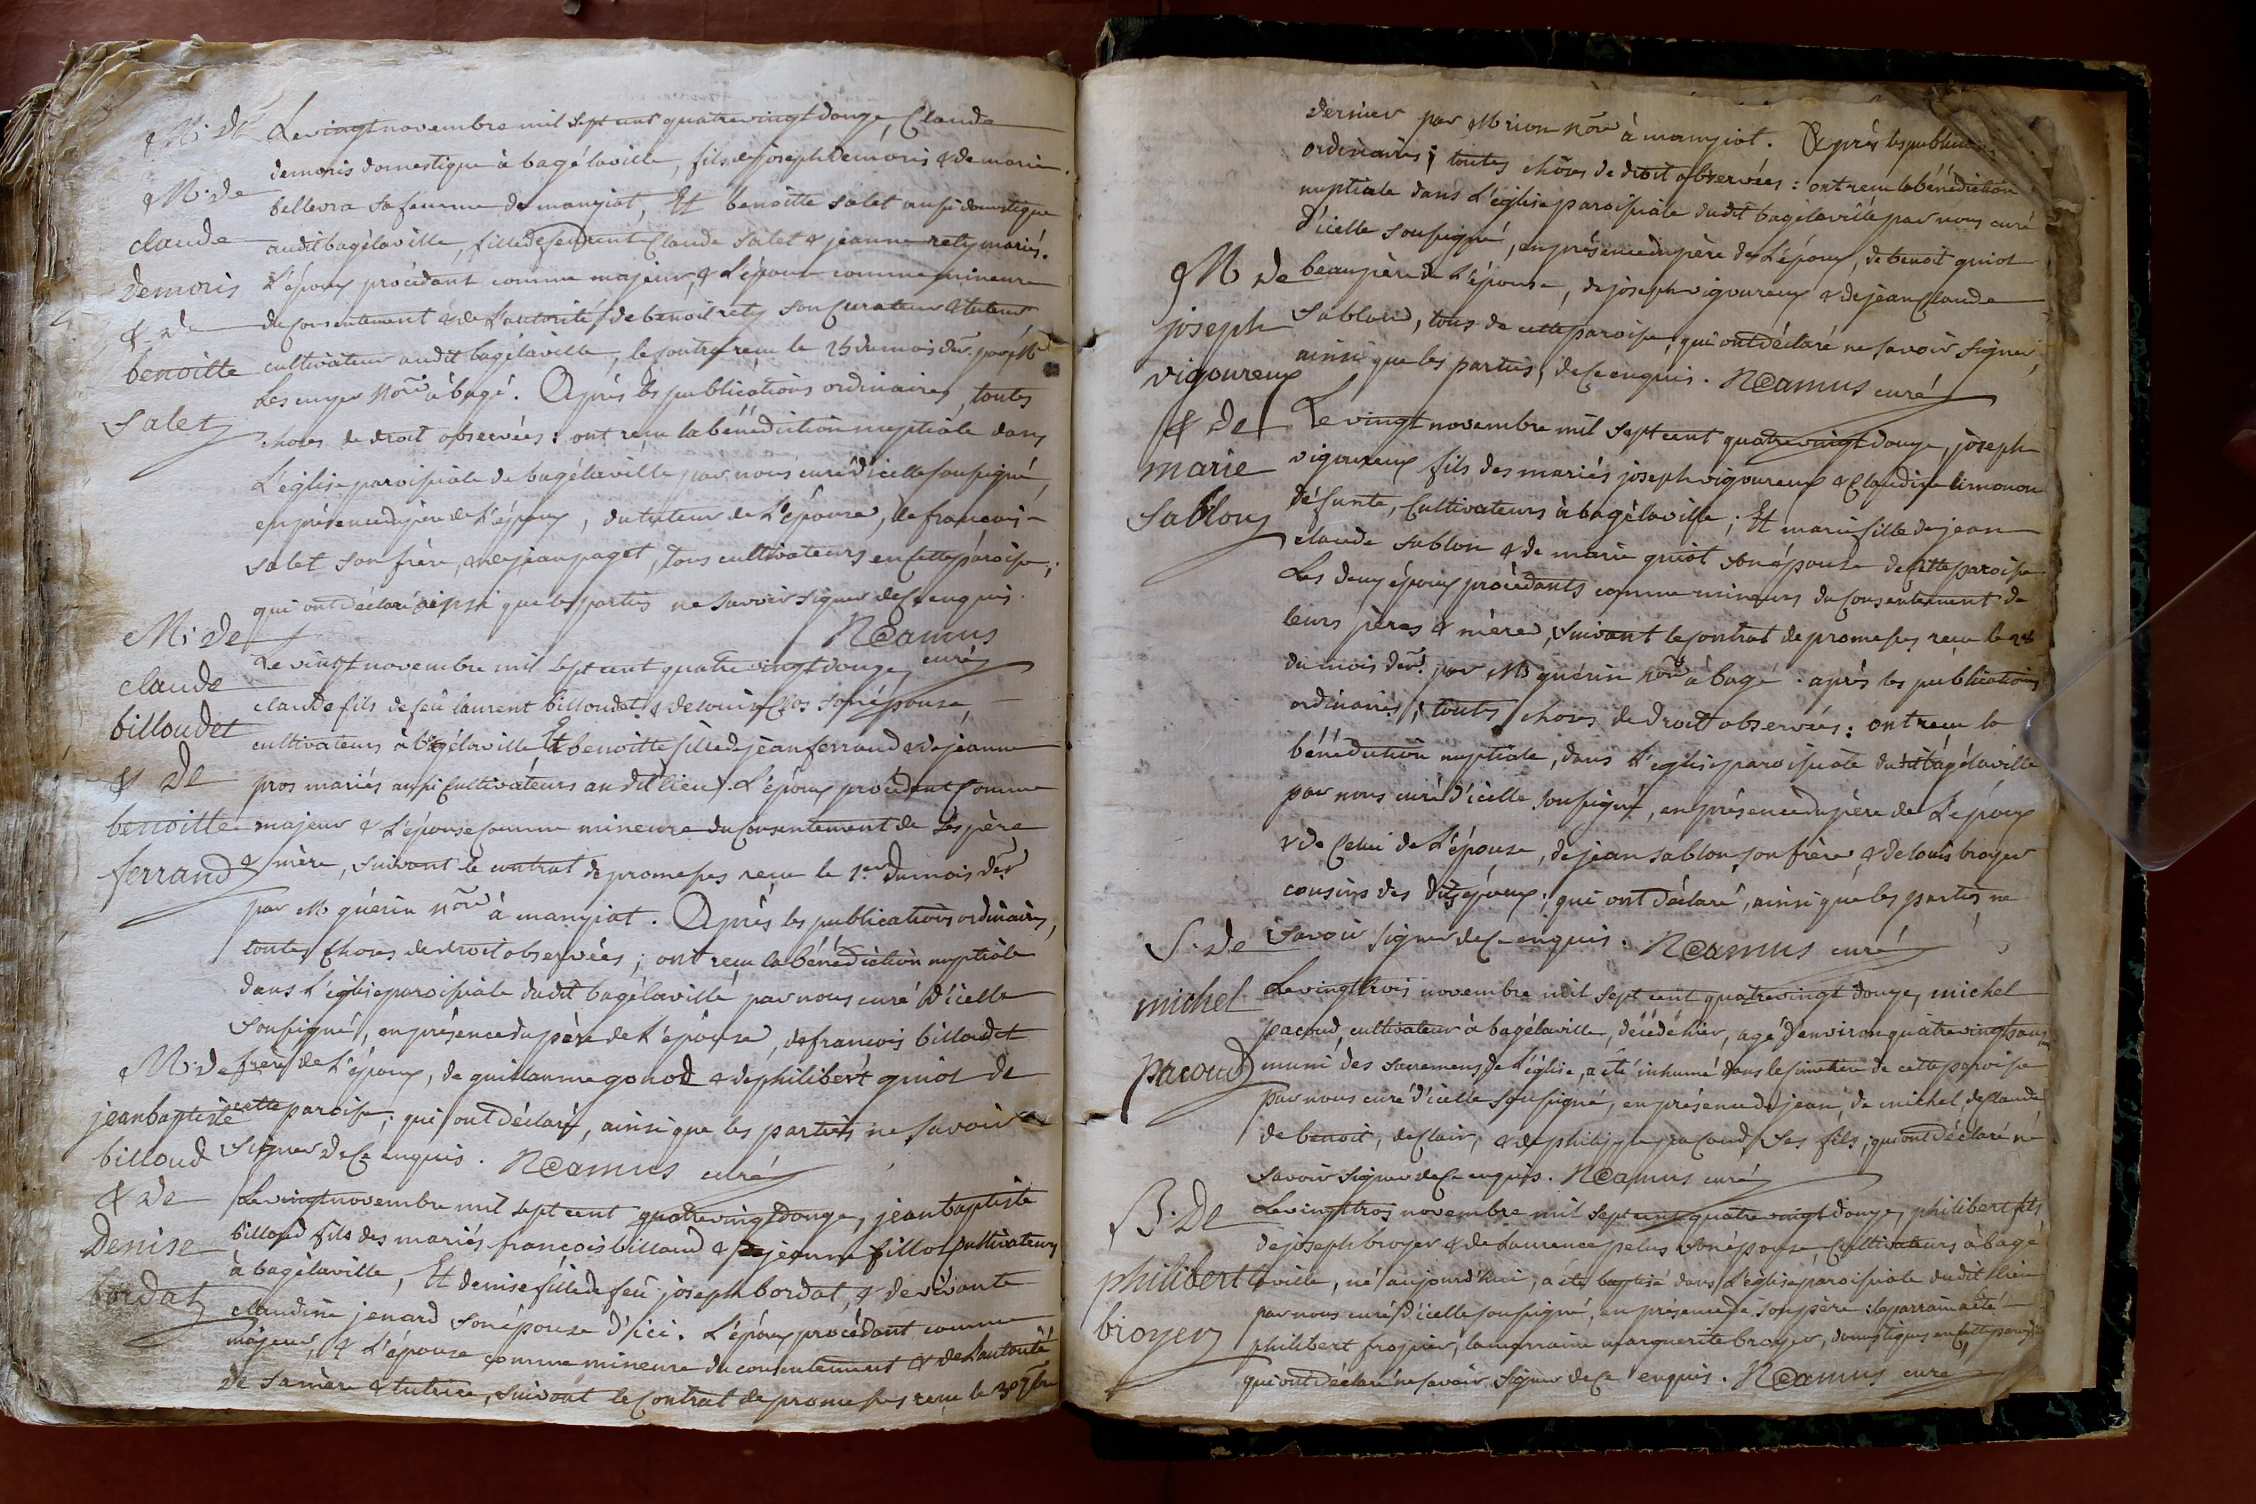 M. de
M. de
claude
demoris
& de
benoitte
Salet
Le vingt novembre mil sept cent quatre vingt douze, Claude
demoris domestique à bagélaville, fils de joseph demoris & de marie
bellevra sa femme de manziat, Et benoitte salet aussi domestique
audit bagélaville, fille de feu Claude Salet & jeanne rety mariés.
L'époux procédant comme majeur, & L'épouse comme mineure
du Consentement & de L'autorité de benoit rety son Curateur & tuteur
cultivateur audit bagélaville, le contrat reçu le 25 du mois der. par Me
Les cuyer nore à bagé. Après les publications ordinaires, toutes
choses de droit observées : ont reçu la bénédiction nuptiale dans
L'église paroissiale de bagélaville par nous curé d'icelle soussigné,
en présence du père de L'époux, du tuteur de L'épouse, de francois
salet son frère, & de jean paget, tous cultivateurs en Cette paroisse,
qui ont déclaré ainsi que les parties ne savoir signer de Ce enquis.
N Camus
curé
M. de
claude
billoudet
& de
benoitte
ferrand
Le vingt novembre mil sept cent quatre vingt douze,
claude fils de feû laurent billoudet & de louise Clos son épouse,
cultivateurs à bagélaville Et benoitte fille de jean ferrand & de jeanne
pros mariés aussi Cultivateurs au dit lieu. L'époux procédant Comme
majeur & L'épouse comme mineure du Consentement de ses père
& mère, suivant le contrat de promesses reçu le 1er du mois der
par M guérin nore à manziat. Après les publications ordinaires,
toutes choses de droit observées ; ont reçu la bénédiction nuptiale
dans L'église paroissiale dudit bagélaville par nous curé d'icelle
soussigné, en présence du père de L'épouse, de francois billoudet
frère de L'époux, de guillaume gonod & de philibert guiot de
cette paroisse ; qui ont déclaré, ainsi que les parties ne savoir
signer de Ce enquis. N Camus curé
M. de
jean baptiste
billoud
& de
Denise
bordat
Le vingt novembre mil sept cent quatre vingt douze, jean baptiste
billoud fils des mariés françois billoud & de jeanne fillot Cultivateurs
à bagélaville, Et denise fille de feû joseph bordat, & de vivante
claudine jenard son épouse d'ici. L'époux procédant comme
majeur, & L'épouse comme mineure du consentement & de L'autorité
de sa mère & tutrice, suivant le Contrat de promesses reçu le 30 7bre
dernier par M rion nore à manziat. Après les publications
ordinaires ; toutes choses de droit observées : ont reçu la bénédiction
nuptiale dans L'église paroissiale dudit bagélaville par nous curé
d'icelle soussigné, en présence du père de L'époux, de benoit guiot
beaupère de L'épouse, de joseph vigoureux & de jean Claude
Sablon, tous de cette paroisse, qui ont déclaré ne savoir signer,
ainsi que les parties, de Ce enquis. N Camus curé
M de
joseph
vigoureux
& de
marie
Sablon
Le vingt novembre mil sept cent quatre vingt douze, joseph
vigoureux fils des mariés joseph vigoureux & Claudine limonon
défunte, Cultivateurs à bagélaville ; Et marie fille de jean
claude sablon & de marie guiot son épouse de Cette paroisse
Les deux époux procédants comme mineurs du Consentement de
leurs pères & mère, suivant le contrat de promesses reçu le 28
du mois der. par M guérin nore à bagé. après les publications
ordinaires, toutes choses de droit observées : ont reçu la
bénédiction nuptiale, dans L'église paroissiale dudit bagélaville
par nous curé d'icelle soussigné, en présence du père de L'époux
& de Celui de L'épouse, de jean sablon son frère & de louis broyer
cousins des dits époux ; qui ont déclaré, ainsi que les parties ne
savoir signer de Ce enquis. N Camus curé
S. de
michel
pacoud
Le vingt trois novembre mil sept cent quatre vingt douze, michel
pacoud, cultivateur à bagélaville, décédé hier, agé d'environ quatre vingts ans
muni des sacremens de L'église, a été inhumé dans le cimetière de cette paroisse
par nous curé d'icelle soussigné, en présence de jean, de michel, de Claude
de benoit, de Clair, & de philippe pacoud ses fils ; qui ont déclaré ne
savoir signer de Ce enquis. N Camus curé
B. De
philibert
broyer
Le vingt trois novembre mil sept cent quatre vingt douze, philibert fils
de joseph broyer & de Laurence pelus son épouse Cultivateurs à bagé
laville, né aujourd'hui, a été baptisé dans L'église paroissiale dudit lieu
par nous curé d'icelle soussigné, en présence de son père : le parrain a été
philibert frojier, la marraine marguerite broyer, domestiques en Cette paroisse
qui ont déclaré ne savoir signer de Ce enquis. N Camus curé